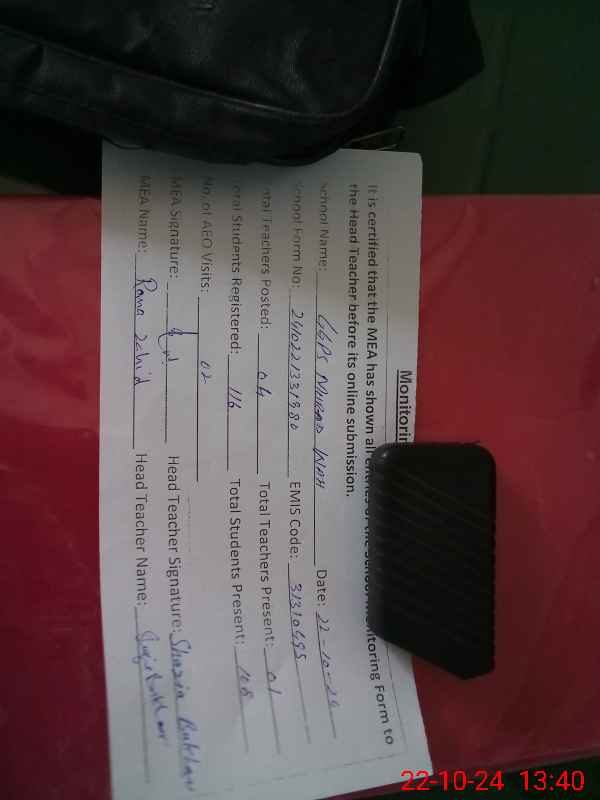 Monitorin
It is certified that the MEA has shown all entries of the School Monitoring Form to
the Head Teacher before its online submission.
School Name: GGPS MURAD WAH Date: 22-10-24
School Form No: 2410221331980 EMIS Code: 31310495
otal Teachers Posted: 04 Total Teachers Present: 01
otal Students Registered: 116 Total Students Present: 108
No. of AEO Visits: 02
MEA Signature: Head Teacher Signature: Shazia
MEA Name: Rana Zahid Head Teacher Name:
22-10-24 13:40